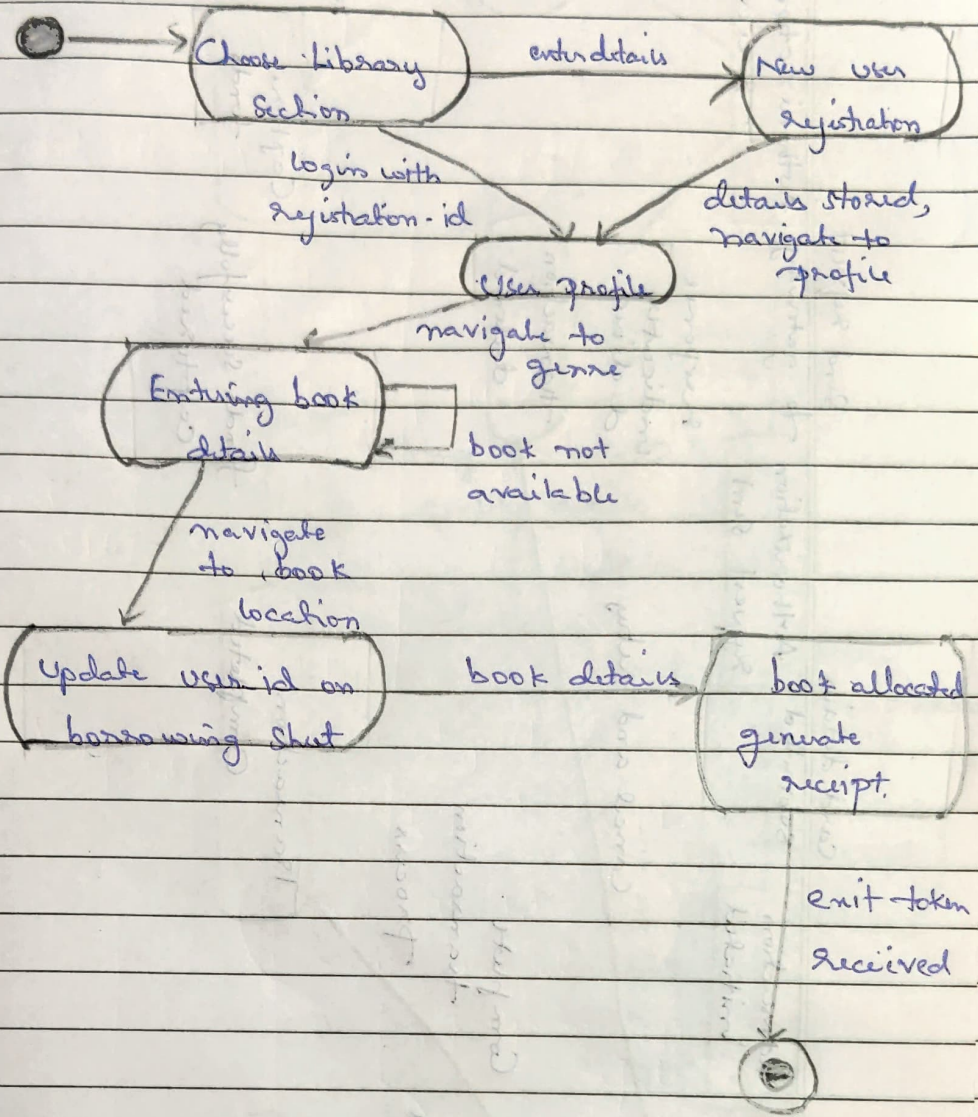 Choose Library
Section
enter details
New user
registration
login with
registration-id
details stored,
navigate to
profile
User profile
navigate to
genre
Entering book
details
book not
available
navigate
to book
location
update user id on
borrowing sheet
book details
book allocated
generate
receipt.
exit token
received